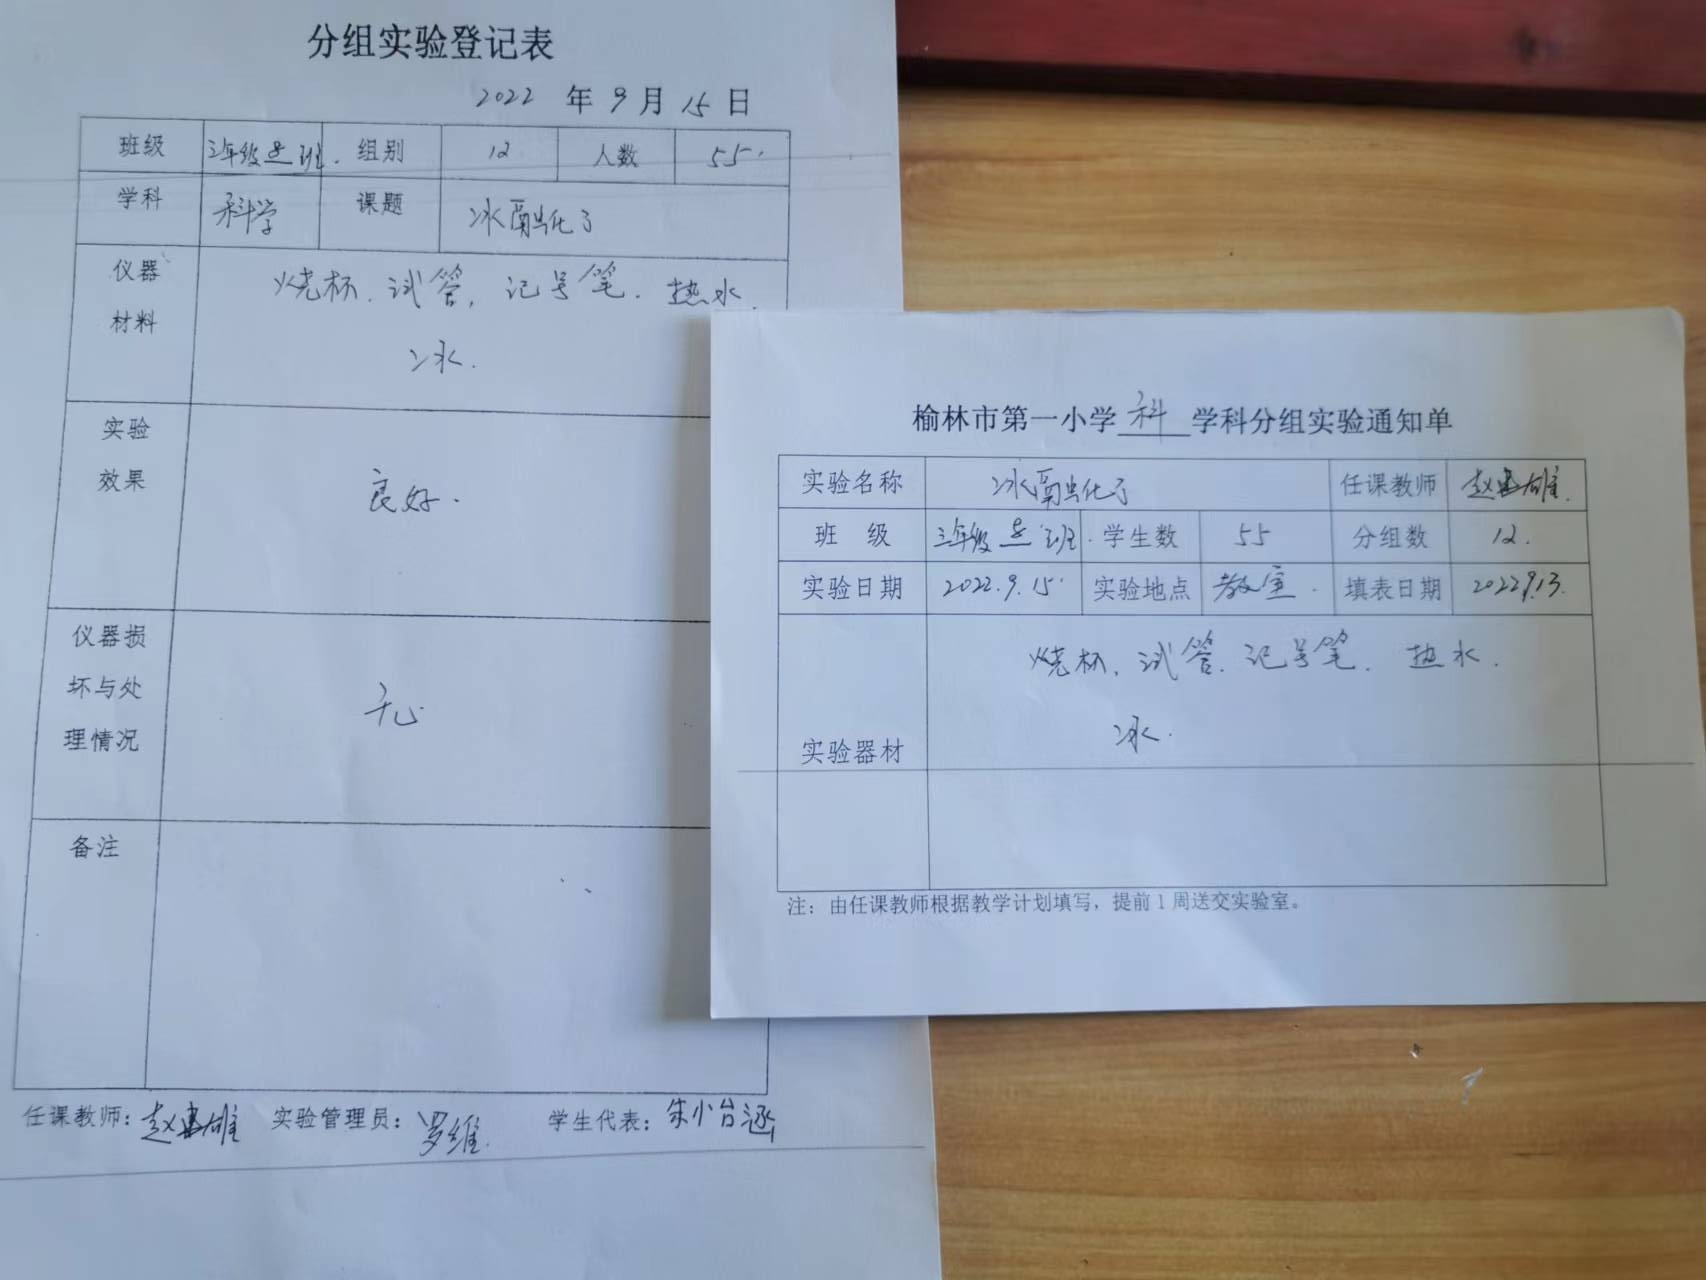 分组实验登记表
2022 年 9 月 15 日
班级 三年级 班. 组别 12 人数 55.
学科 科学 课题 冰融化了
仪器 烧杯、试管、记号笔、热水、
材料 冰.
实验 良好.
效果
仪器损
坏与处 无
理情况
备注
任课教师: 赵 雄 实验管理员: 罗维 学生代表: 朱 涵
榆林市第一小学 科 学科分组实验通知单
实验名称 冰融化了 任课教师 赵 雄.
班 级 三年级 班. 学生数 55 分组数 12.
实验日期 2022.9.15. 实验地点 教室. 填表日期 2022.9.13.
烧杯、试管、记号笔、热水.
冰.
实验器材
注：由任课教师根据教学计划填写，提前1周送交实验室。